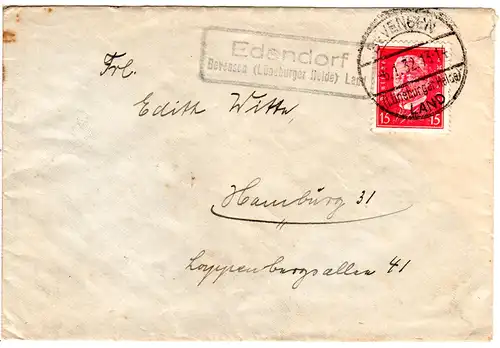 Edendorf
Bevensen (Lüneburger Heide) Land
BEVENSEN
32
(Lüneburger Heide)
LAND
15 15
Frl.
Edith Witte,
Hamburg 31
Loppenbergsallee 41